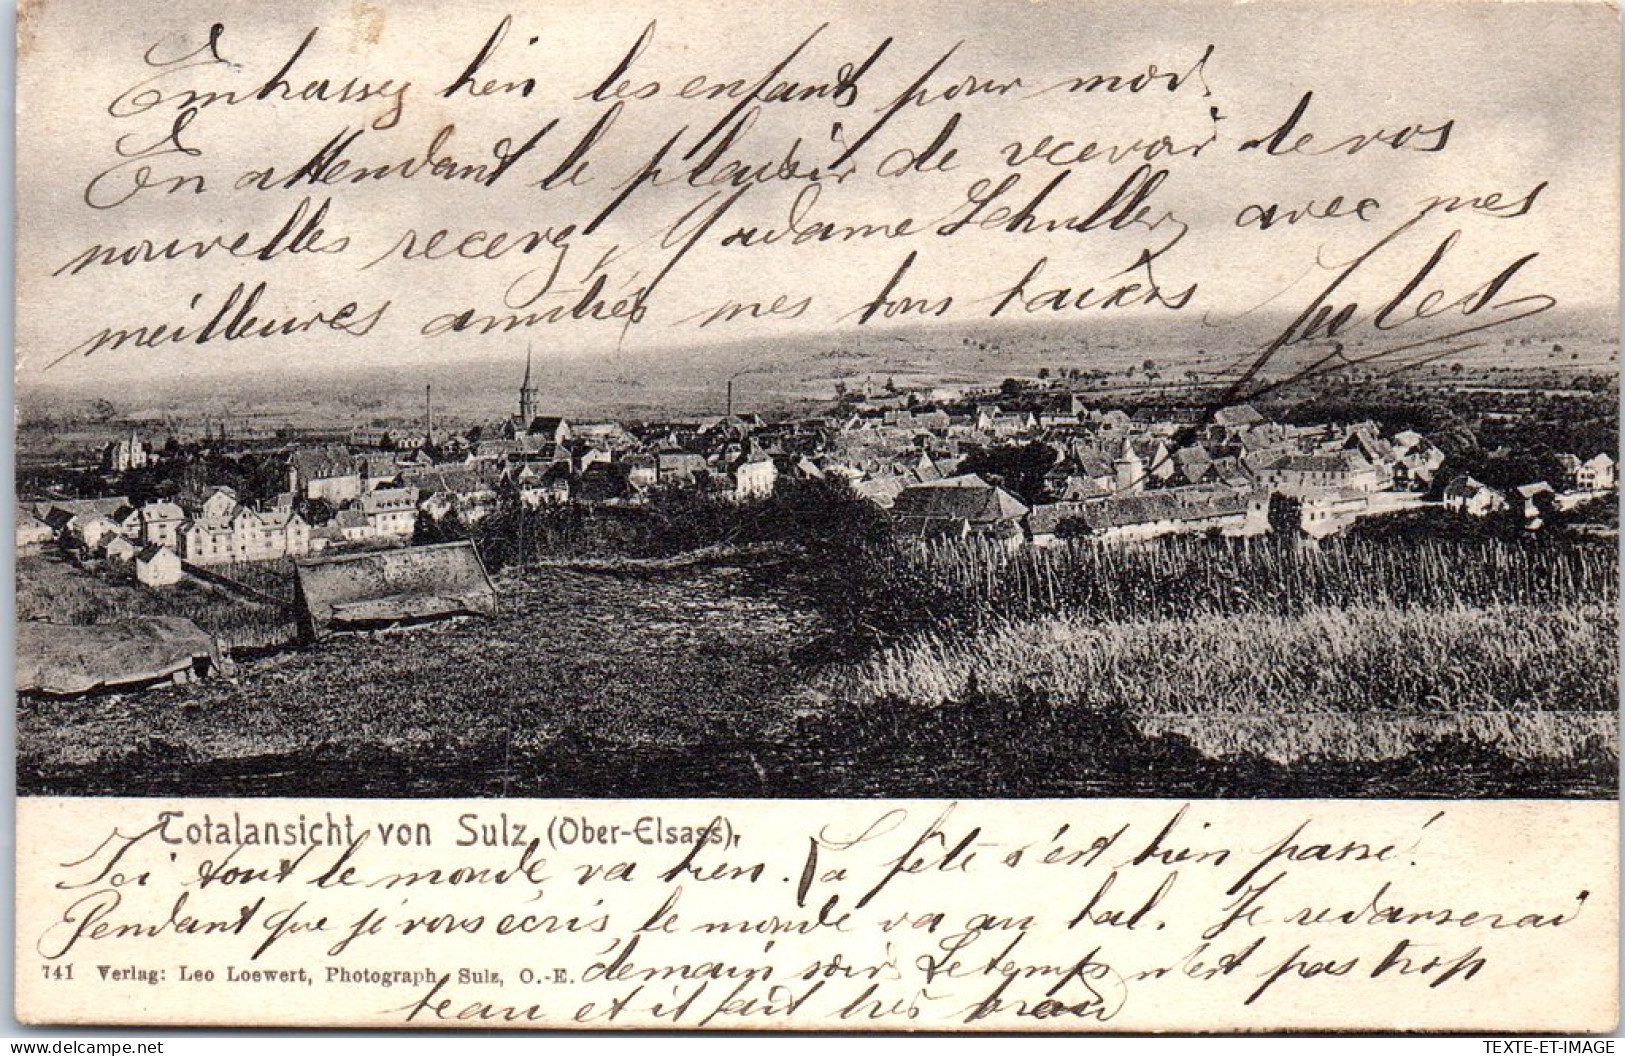 Embrassez bien les enfants pour moi.
En attendant le plaisir de recevoir de vos
nouvelles recevez, Madame Schuller, avec mes
meilleures amitiés mes bons baisers Jules
Totalansicht von Sulz (Ober-Elsass).
Ici tout le monde va bien. La fête s'est bien passé.
Pendant que je vous écris le monde va au bal. Je redanserai
741 Verlag: Leo Loewert, Photograph, Sulz, O.-E.
demain soir Le temps n'est pas trop
beau et il fait très
delcampe.net
TEXTE-ET-IMAGE